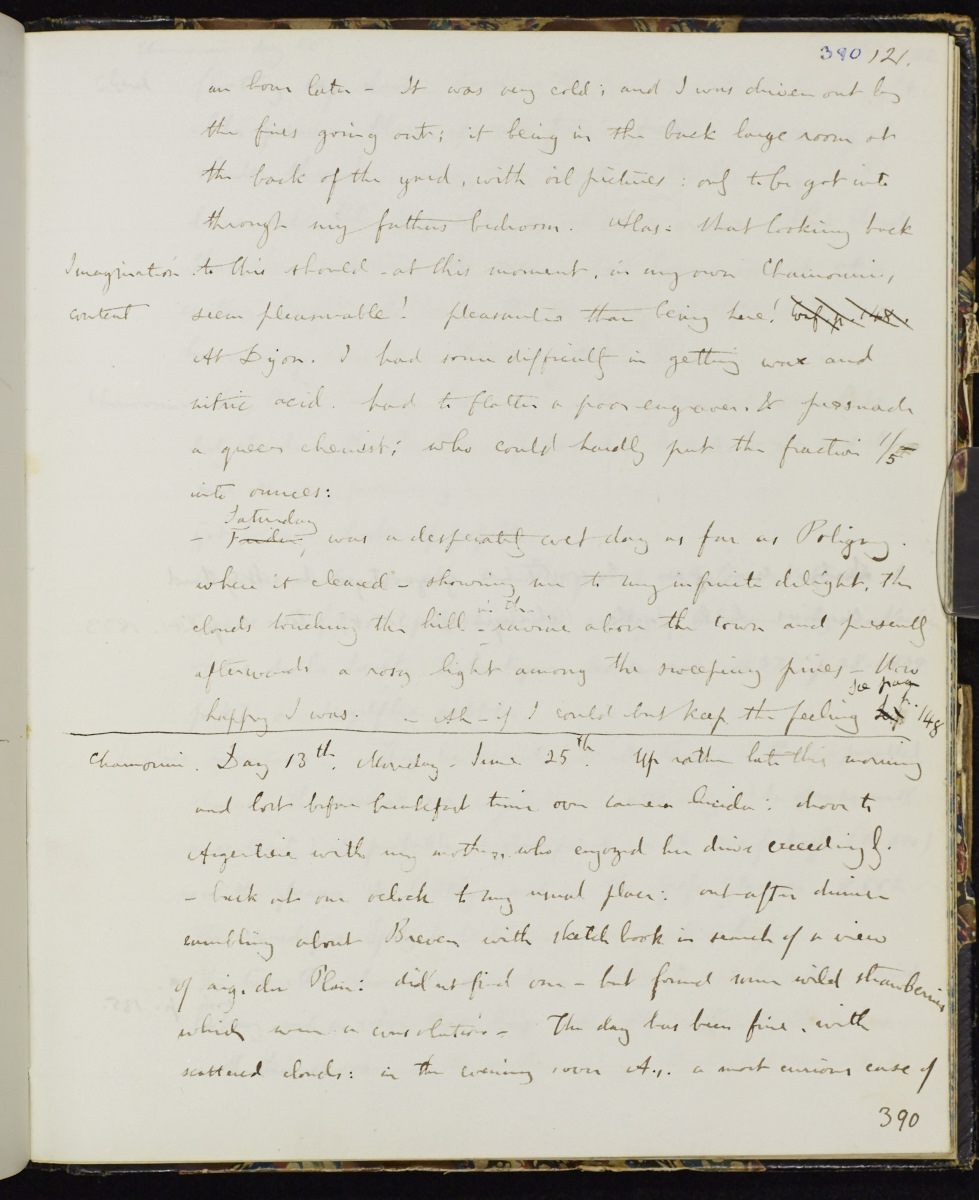 380 121.
an hour later - It was very cold; and I was driven out by
the fires going out; it being in the back large room at
the back of the yard, with oil pictures: only to be got into
through my fathers bedroom. Alas. that looking back
Imagination to this should - at this moment, in my own Chamouni,
content seem pleasurable! pleasanter than being here!
At Dijon. I had some difficulty in getting wax and
nitric acid. had to flatter a poor engraver. & persuade
a queer chemist; who could hardly put the fraction 1/5
into ounces:
Saturday
- Friday, was a desperately wet day as far as Poligny.
where it cleared - showing me to my infinite delight, the
in the
clouds touching the hill - ravine above the town and presently
afterwards a rosy light among the sweeping pines - How
see page
happy I was. - Ah - if I could but keep the feeling 148
Chamouni. Day 13th. Monday - June 25th. Up rather late this morning
and lost before breakfast time over camera lucida: drove to
Argentiere with my mother, who enjoyed her drive exceedingly.
- back at one oclock to my usual place: out after dinner
rambling about Breven with sketch book in search of a view
of aig. du Plan: did not find one - but found some wild strawberries
which were a consolation - The day has been fine, with
scattered clouds: in the evening over a most curious case of
390